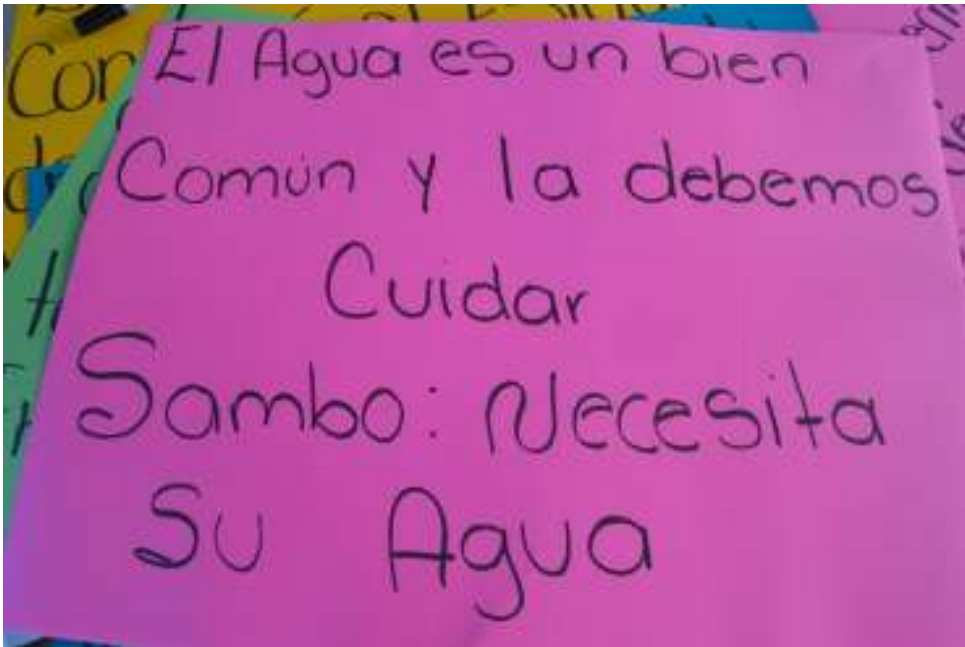 El Agua es un bien
Común y la debemos
Cuidar
Sambo: Necesita
Su Agua
Con